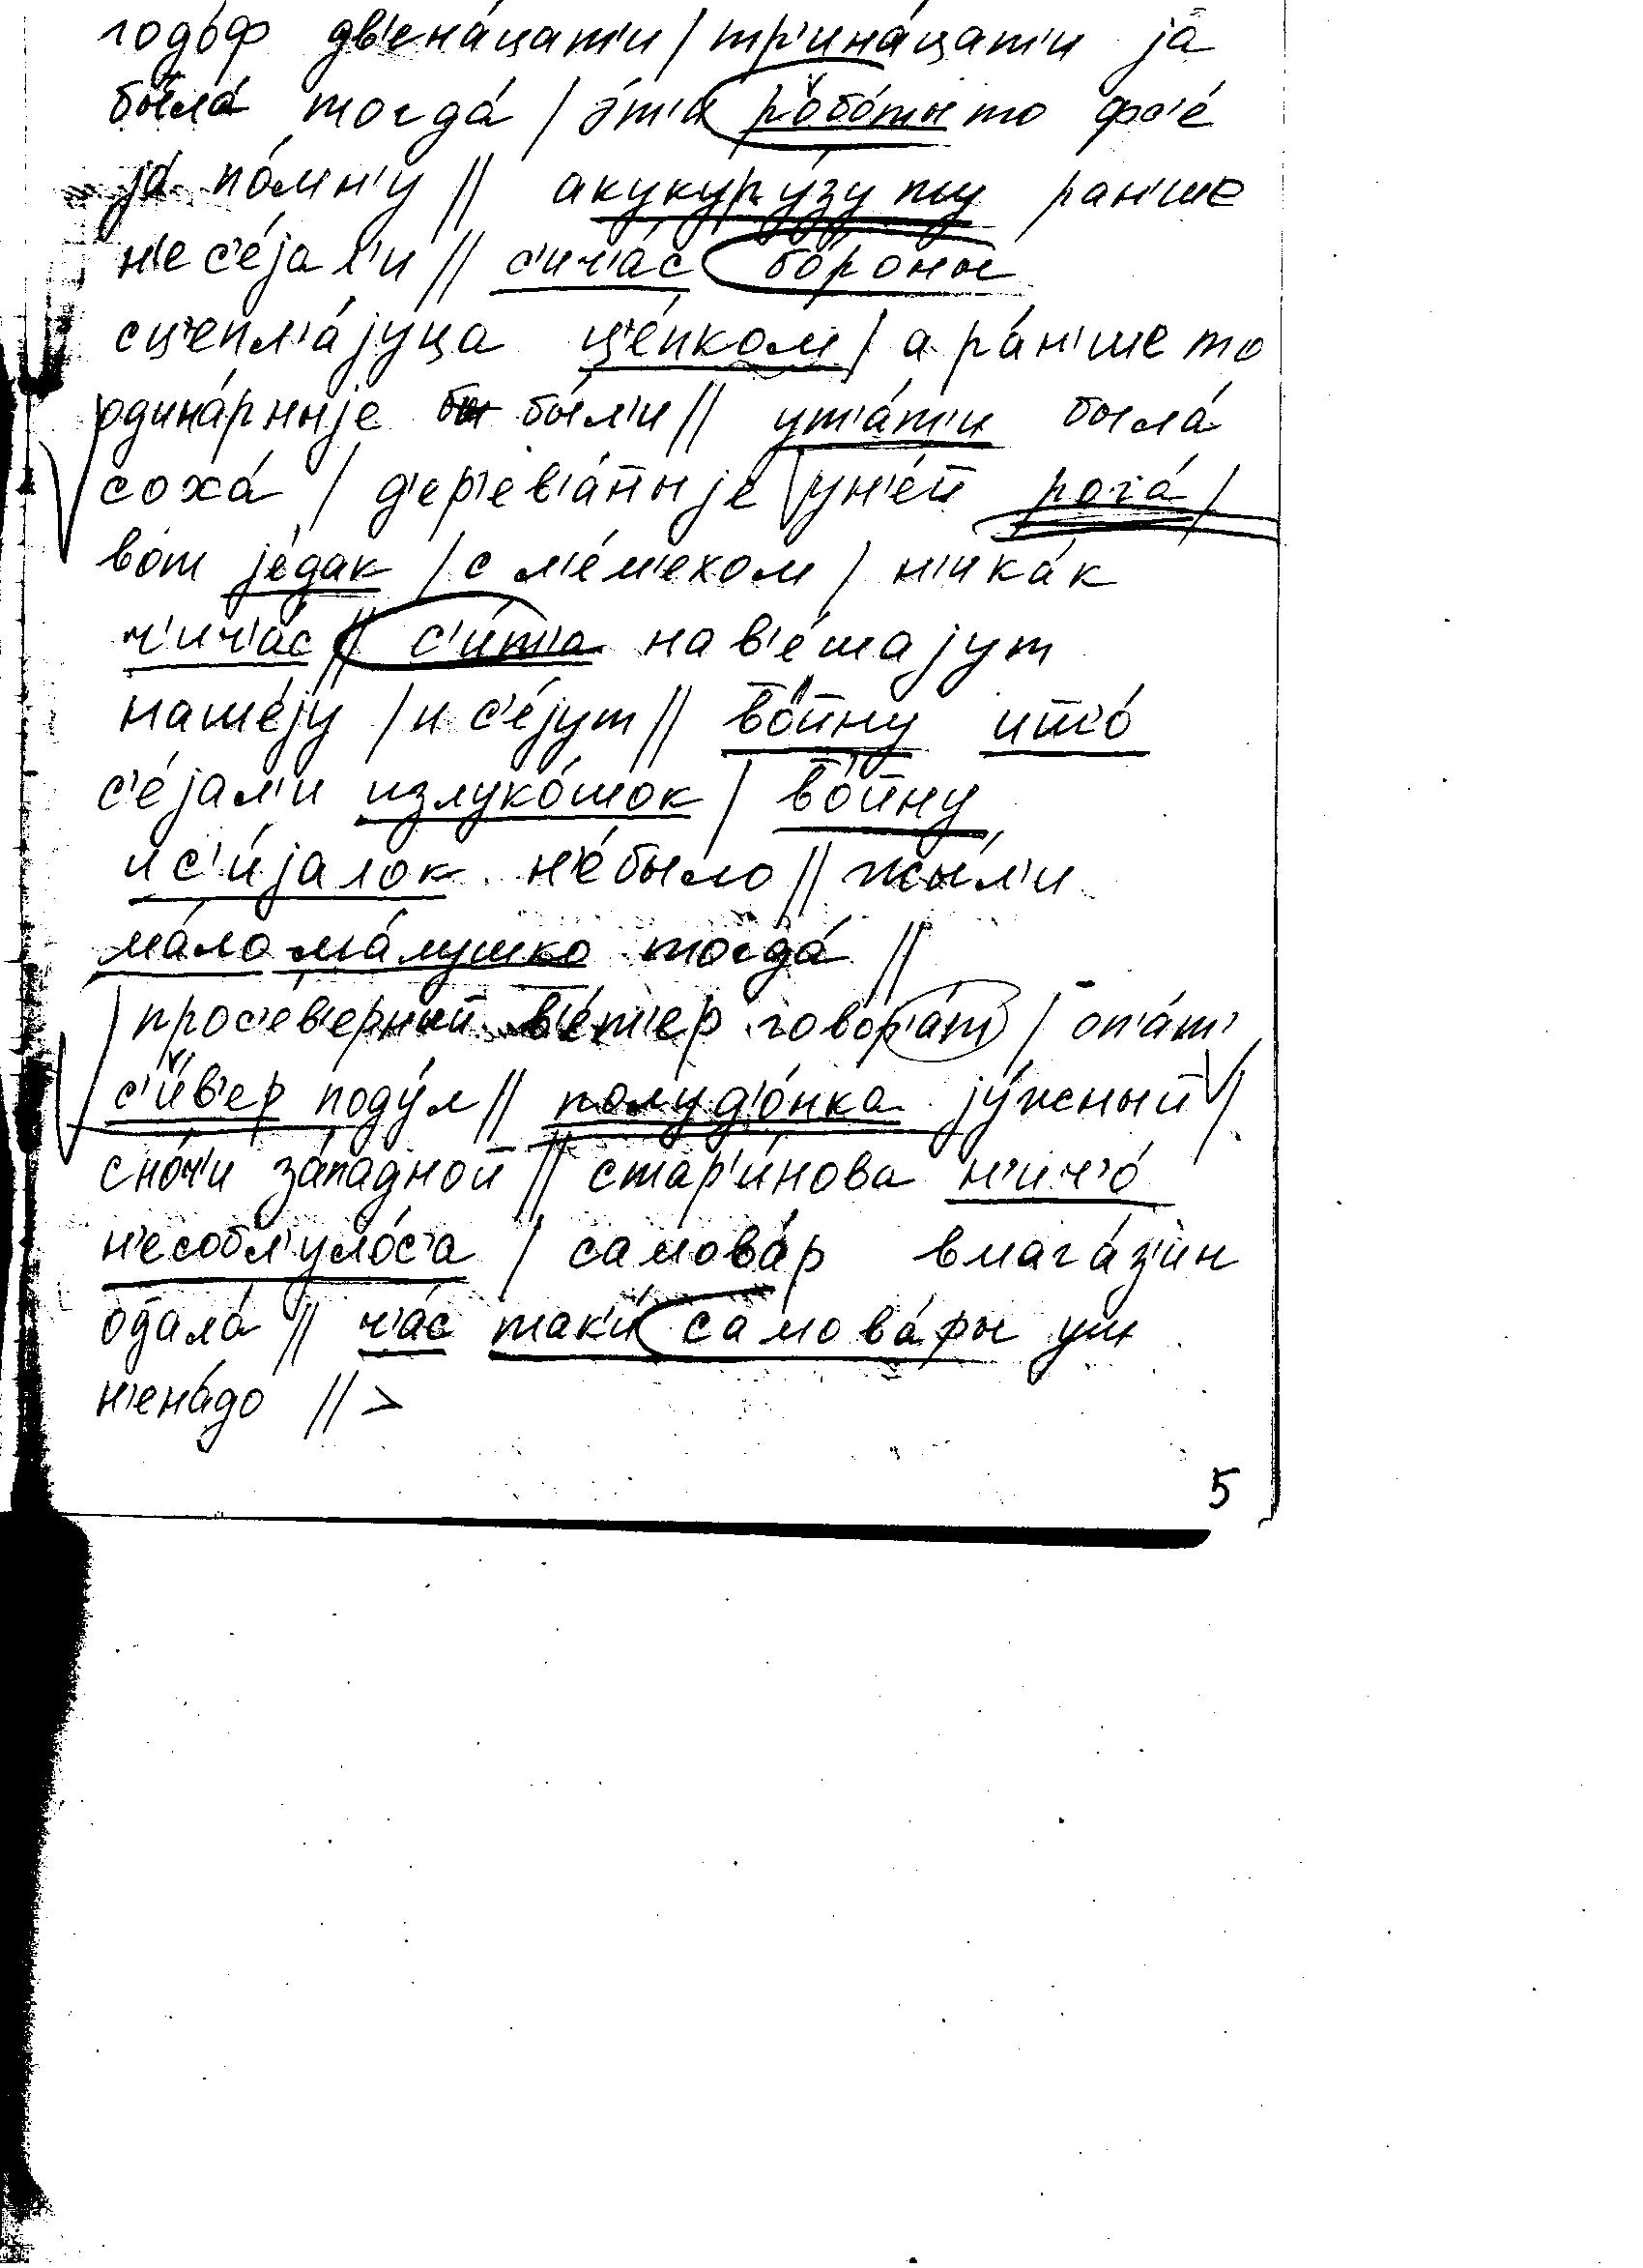 годо́ф дв'ена́цат'и / тр'ина́цат'и ја́
была́ тогда́ / э́т'и робо́ты то фс'е́
ја́ по́мн'у // акукуру́зу ту ран'ше
н'ес'е́јал'и // с'ич'а́с бо́роны
сц'епл'а́јуца це́пком / а ра́н'ше то
одина́рныје бы́л'и // ут'а́т'и была́
соха́ / д'ер'ев'а́ныје ун'е́й рога́ /
во́т је́дак / с л'е́м'ехом / н'ика́к
ч'ич'а́с // с'и́т'а нав'е́шајут
нашéју / и с'е́јут // во́йну ит'о́
с'е́јал'и излуко́шок / во́йну
ис'и́јалок н'е́было // жы́л'и
ма́ло ма́лушко тогда́ //
прос'е́в'ерный в'е́т'ер говор'а́т / оп'а́т'
с'и́в'ер поду́л // полуд'о́нка јужный /
сно́ч'и за́падной // стар'и́нова н'ич'о́
н'есобл'уло́с'а / самова́р вмага́з'ин
одала́ // ч'а́с так'и́ самова́ры уш
н'ена́до // >
5